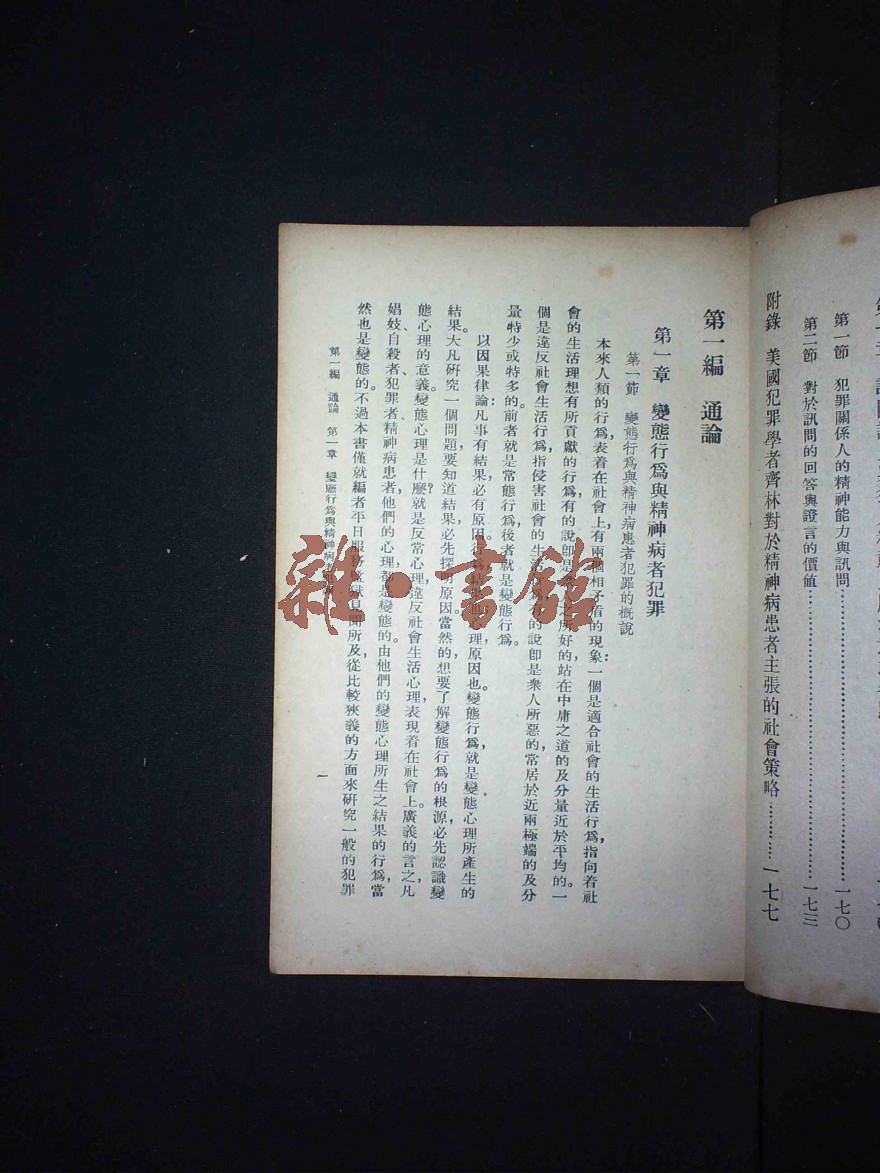 第一節　犯罪關係人的精神能力與訊問…………一七〇
第二節　對於訊問的回答與證言的價値…………一七三
附錄　美國犯罪學者齊林對於精神病患者主張的社會策略…………一七七
第一編　通論
第一章　變態行爲與精神病者犯罪
第一節　變態行爲與精神病患者犯罪的槪說
本來人類的行爲，表着在社會上有兩個相矛盾的現象：一個是適合社會的生活行爲，指向着社
會的生活理想有所貢獻的行爲，有的說卽是衆人之所好的站在中庸之道的及分量近於平均的。一
個是違反社會生活行爲，指侵害社會的生活行爲，有的說卽是衆人所惡的，常居於近兩極端的及分
量特少或特多的。前者就是常態行爲，後者就是變態行爲。
以因果律論：凡事有結果，必有原因。行爲，結果也，心理，原因也。變態行爲，就是變態心理所產生的
結果。大凡硏究一個問題，要知道結果，必先探明原因。當然的，想要了解變態行爲的根源，必先認識變
態心理的意義。變態心理是什麽？就是反常心理，違反社會生活心理，表現着在社會上。廣義的言之，凡
娼妓、自殺者、犯罪者、精神病患者，他們的心理，都是變態的。由他們的變態心理所生之結果的行爲，當
然也是變態的。不過本書僅就編者平日服務監獄見聞所及，從比較狹義的方面來硏究一般的犯罪
第一編　通論　第一章　變態行爲與精神病者犯罪
一
雜·書館